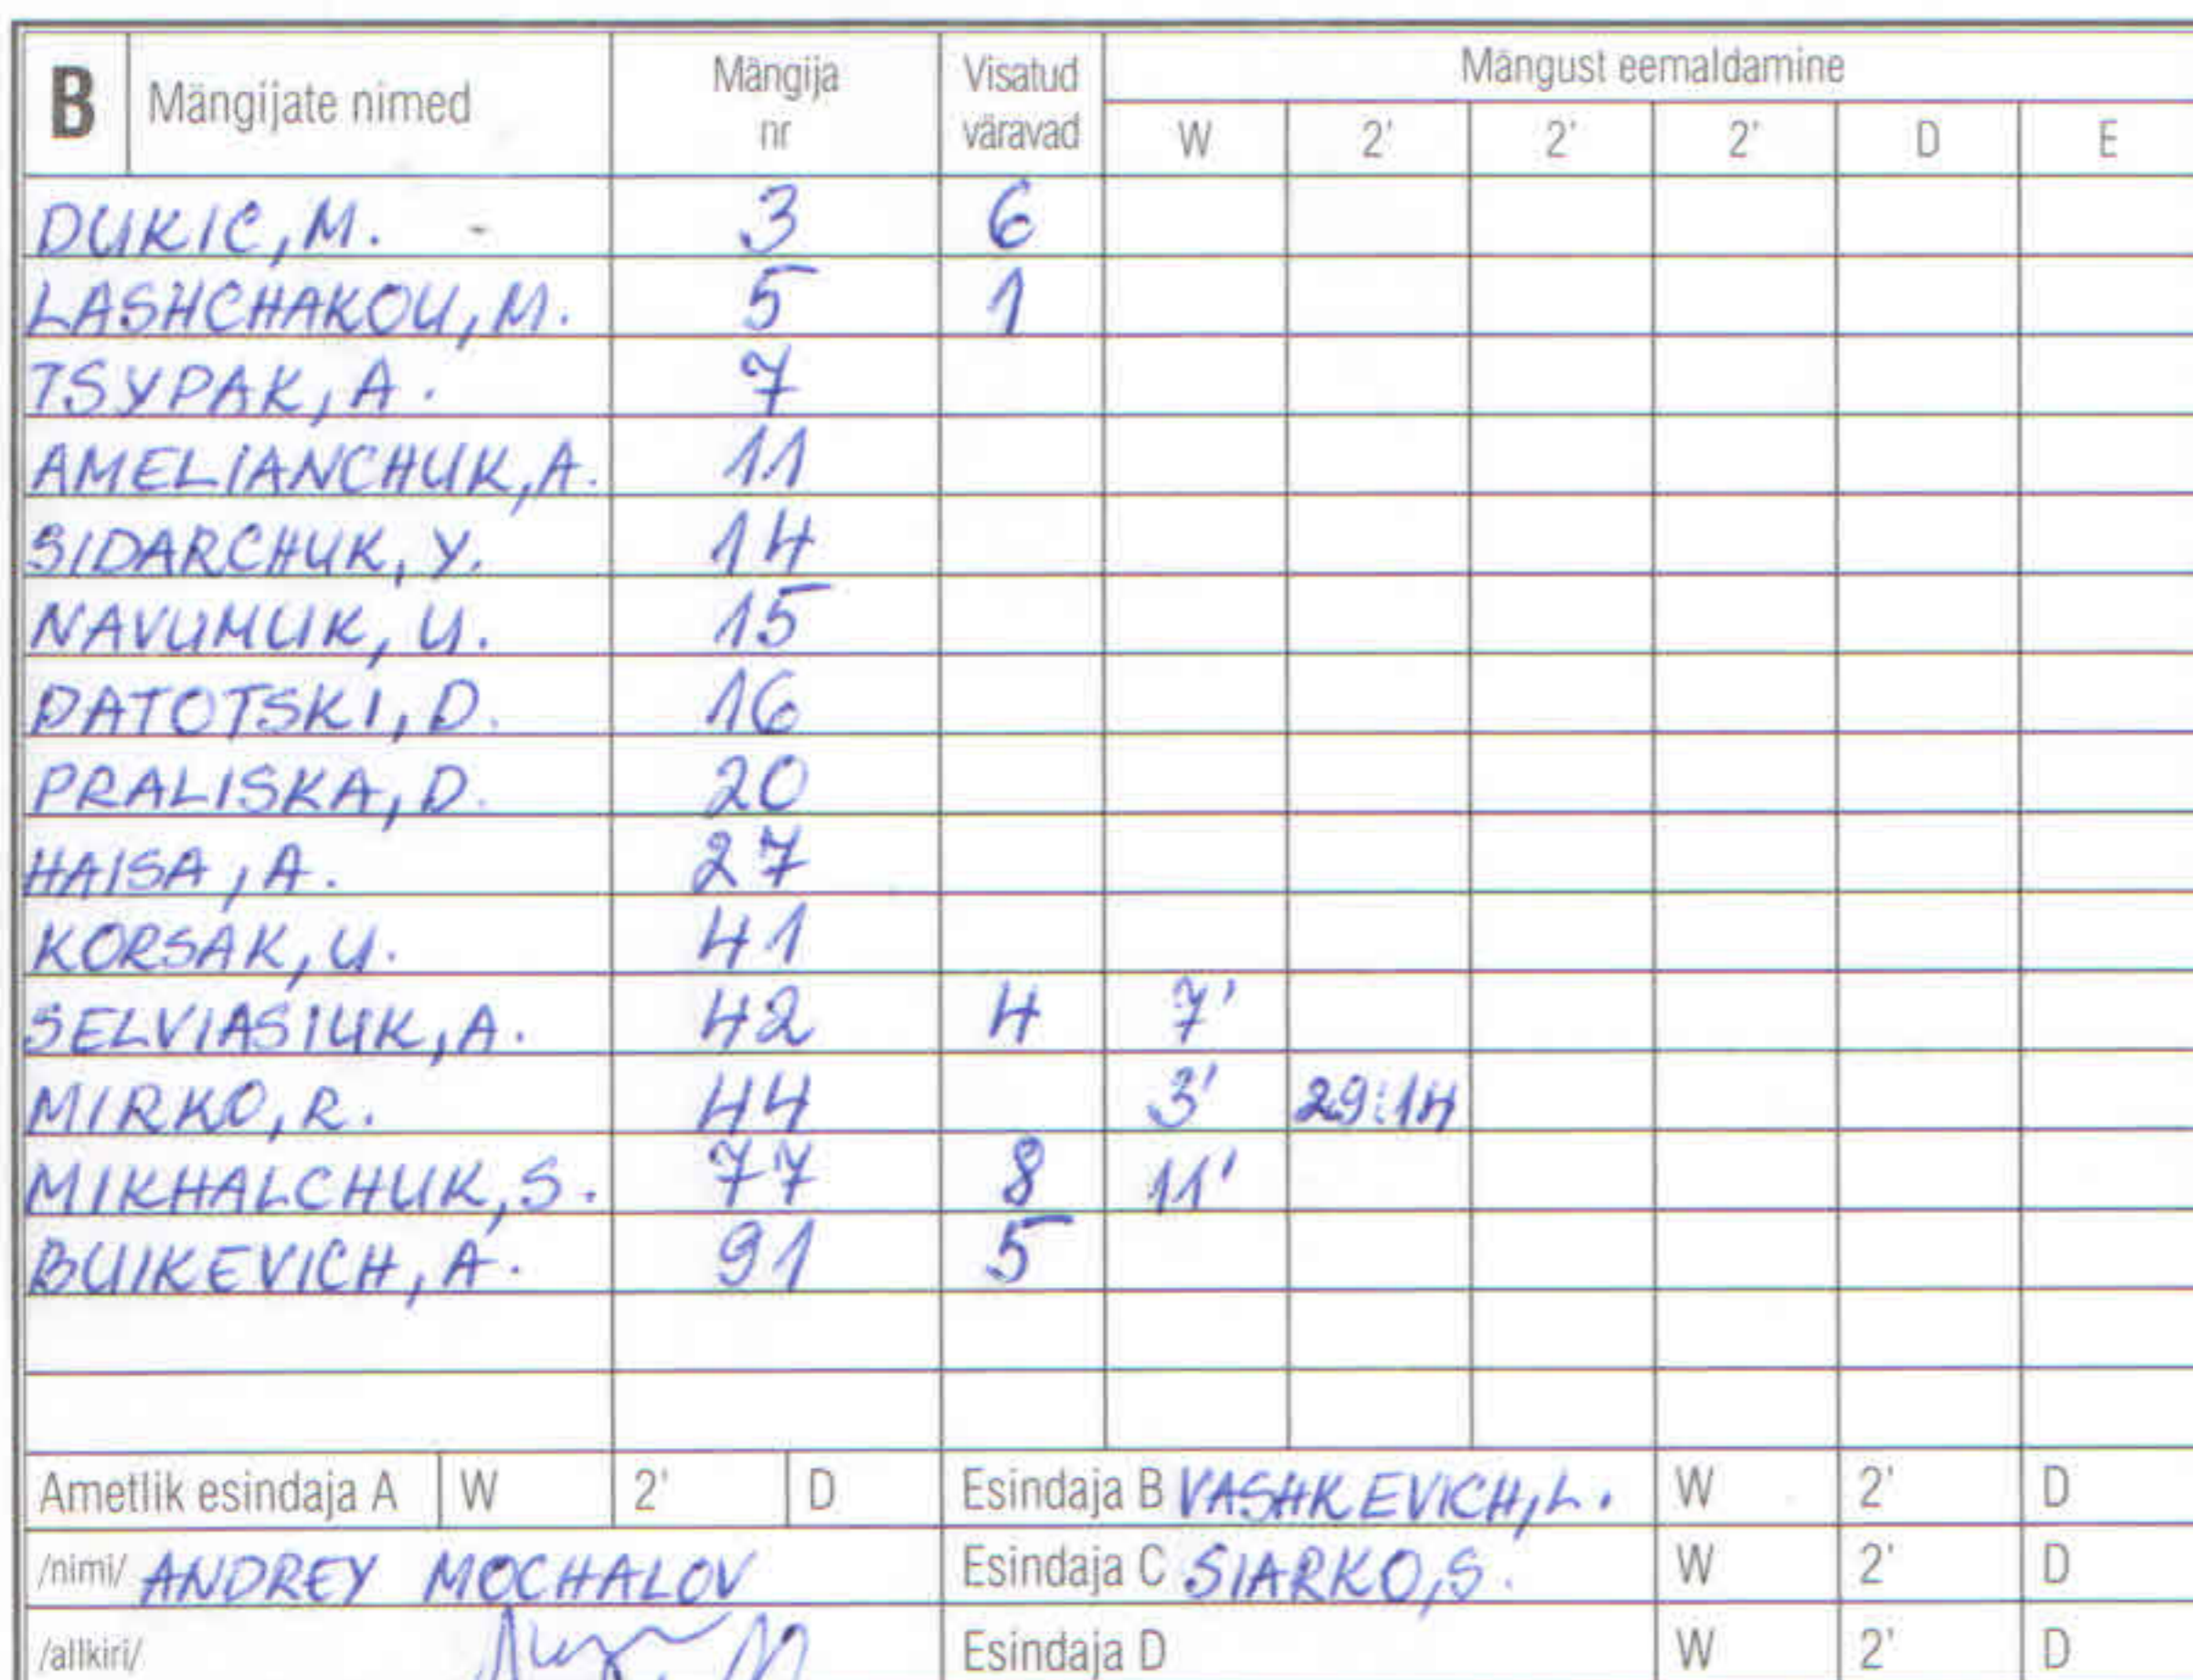 B Mängijate nimed Mängija nr Visatud väravad Mängust eemaldamine
W 2' 2' 2' D E
DUKIC, M. 3 6
LASHCHAKOU, M. 5 1
TSYPAK, A. 7
AMELIANCHUK, A. 11
SIDARCHUK, Y. 14
NAVUMUK, U. 15
PATOTSKI, D. 16
PRALISKA, D. 20
HAISA, A. 27
KORSAK, U. 41
SELVIASIUK, A. 42 4 7'
MIRKO, R. 44 3' 29:14
MIKHALCHUK, S. 77 8 11'
BUIKEVICH, A. 91 5
Ametlik esindaja A W 2' D Esindaja B VASHKEVICH, L. W 2' D
/nimi/ ANDREY MOCHALOV Esindaja C SIARKO, S. W 2' D
/allkiri/ Esindaja D W 2' D